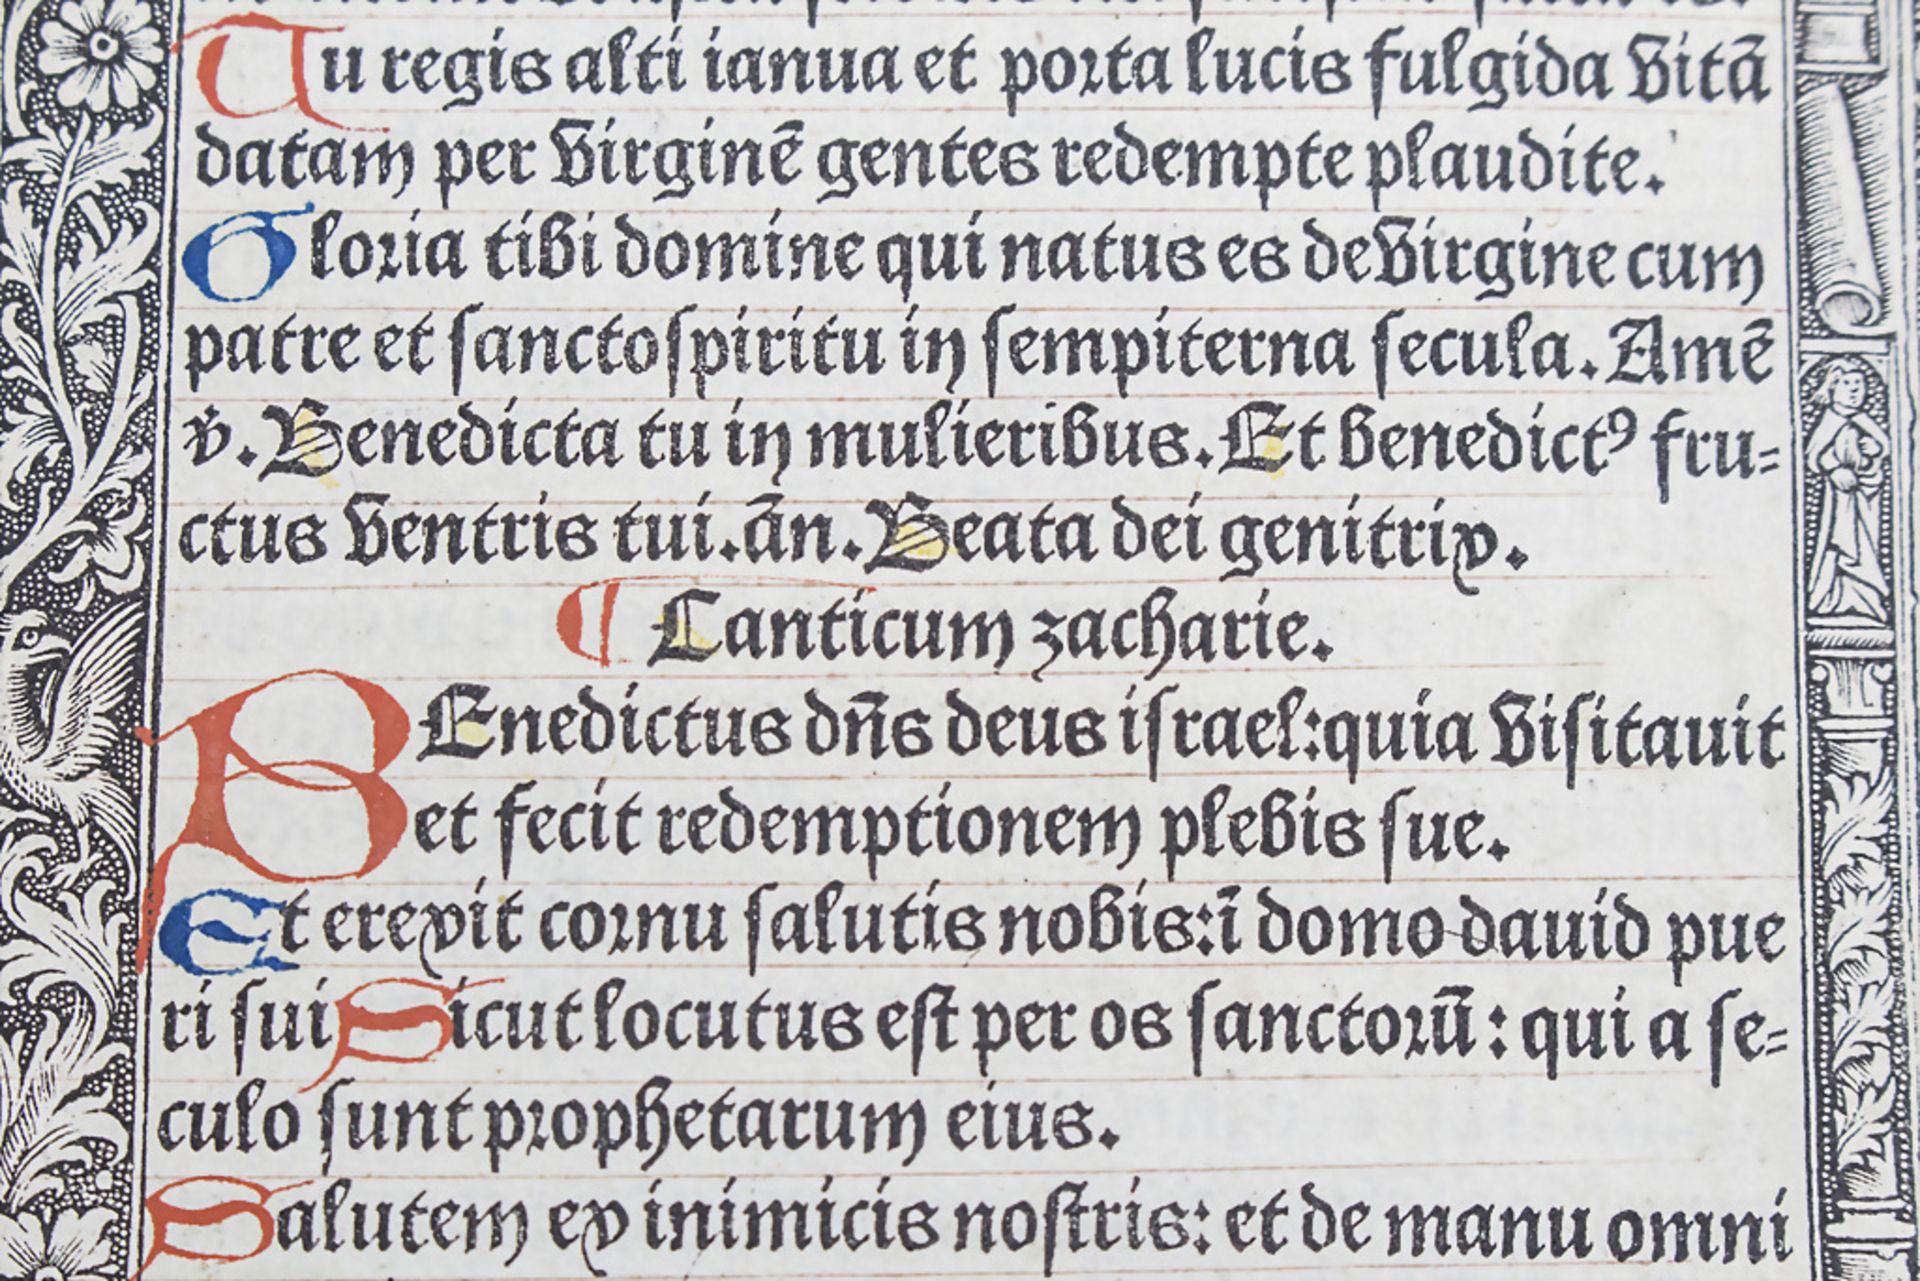 Tu regis alti ianua et porta lucis fulgida vitā
datam per virginē gentes redempte plaudite.
Gloria tibi domine qui natus es de virgine cum
patre et sancto spiritu in sempiterna secula. Amē
v̇. Benedicta tu in mulieribus. Et benedictꝰ fru-
ctus ventris tui. ān. Beata dei genitrix.
¶ Canticum zacharie.
BEnedictus dn̄s deus israel: quia visitauit
et fecit redemptionem plebis sue.
Et erexit cornu salutis nobis: ī domo dauid pue
ri sui Sicut locutus est per os sanctorū: qui a se-
culo sunt prophetarum eius.
Salutem ex inimicis nostris: et de manu omni